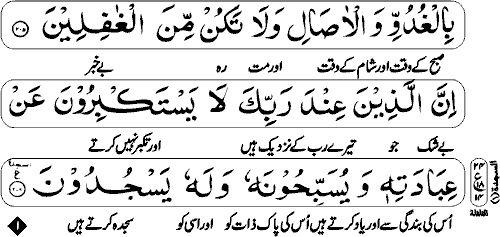 بِالْغُدُوِّ وَالْاٰصَالِ وَلَا تَكُنْ مِّنَ الْغٰفِلِيْنَ ﴿۲۰۵﴾
صبح کے وقت اور شام کے وقت اور مت رہ بے خبر
اِنَّ الَّذِيْنَ عِنْدَ رَبِّكَ لَا يَسْتَكْبِرُوْنَ عَنْ
بے شک جو تیرے رب کے نزدیک ہیں اور تکبر نہیں کرتے
عِبَادَتِهٖ وَيُسَبِّحُوْنَهٗ وَلَهٗ يَسْجُدُوْنَ ﴿۲۰۶﴾
اُس کی بندگی سے اور یاد کرتے ہیں اُس کی پاک ذات کو اور اسی کو سجدہ کرتے ہیں
السجدة